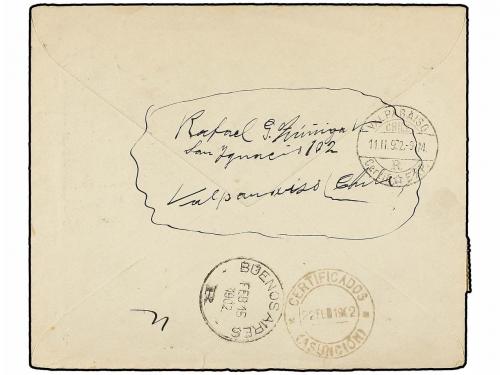 Rafael G. Zúñiga V.
San Ygnacio 102
Valparaiso (Chile)
VALPARAISO
CHILE
11.II.902-9
R
BUENOS AIRES
FEB 15
1902
R
CERTIFICADOS
FEB 1902
(ASUNCION)